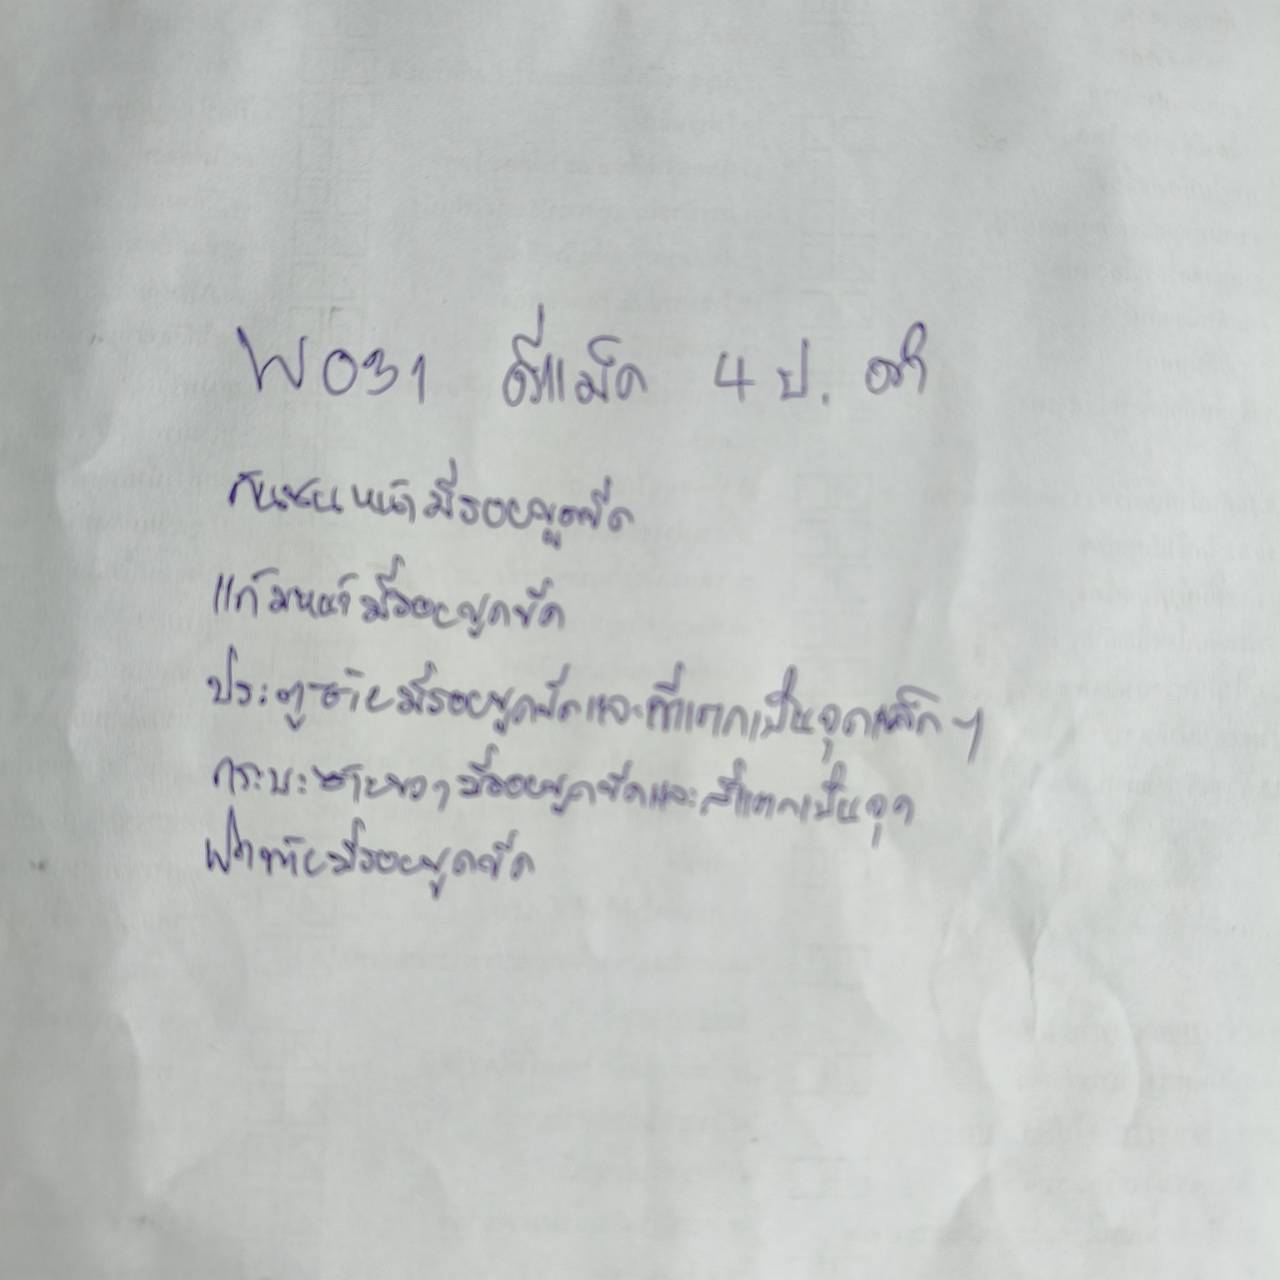 W031 ดีแม็ค 4 ป. ดำ
กันชนหน้ามีรอยขูดขีด
แก้มหน้ามีรอยขูดขีด
ประตูซ้ายมีรอยขูดขีดและสีแตกเป็นจุดเล็ก ๆ
กระบะซ้ายขวามีรอยขูดขีดและสีแตกเป็นจุด
ฝาท้ายมีรอยขูดขีด